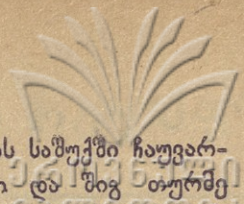 ს საშუქში ჩაუვარ-
ი და შიგ თურმე